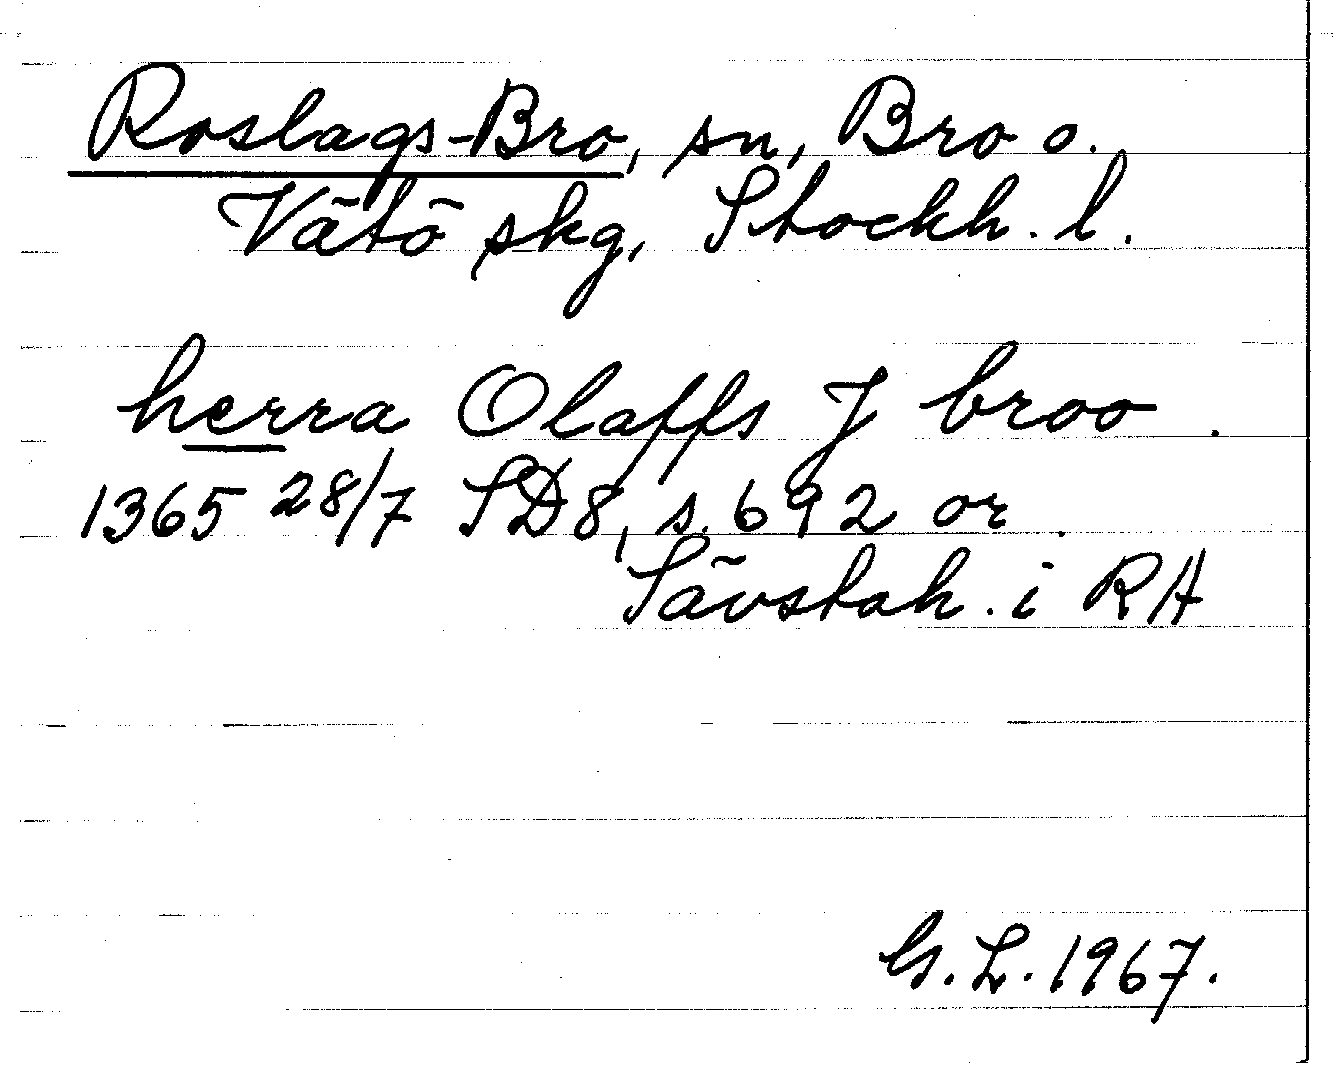 Roslags-Bro, sn, Bro o.
Vätö skg, Stockh. l.
herra Olaffs J broo.
1365 28/7 SD8, s. 692 or.
Sävstah. i RA
G. L. 1967.